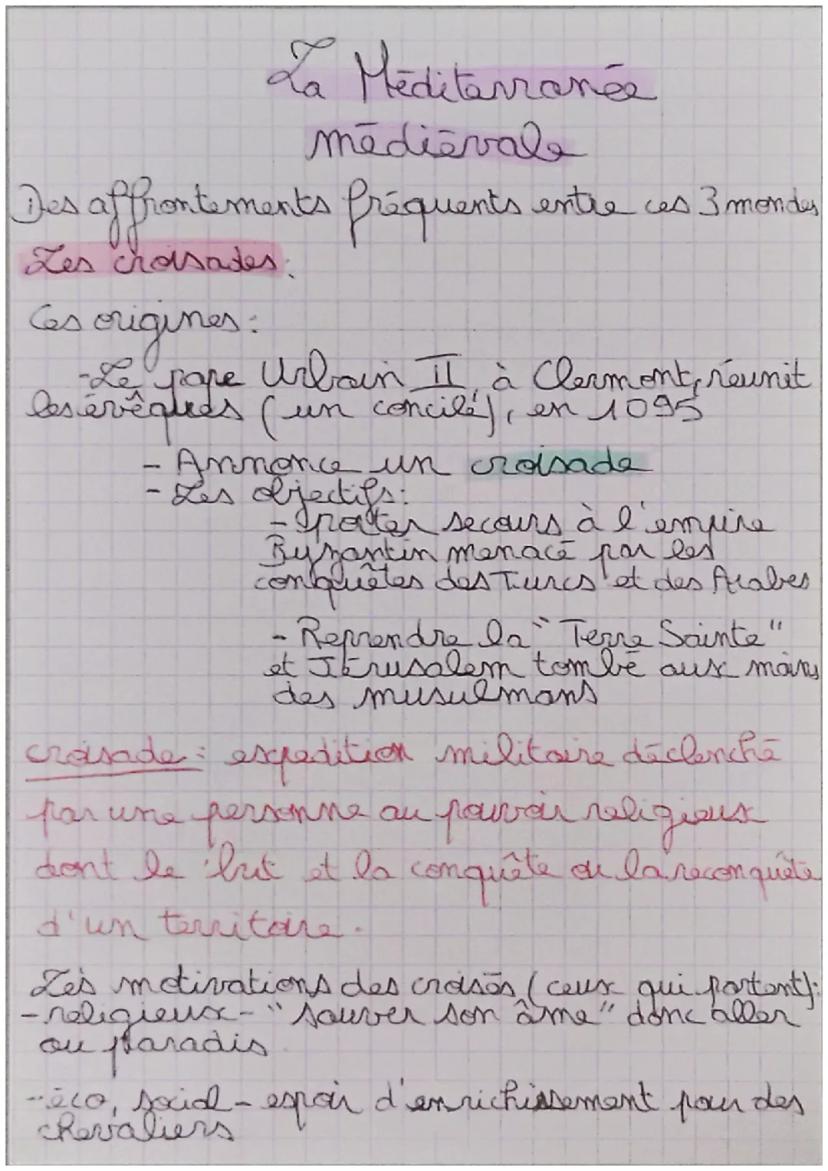 La Méditerranée
médiévale
Des affrontements fréquents entre ces 3 mondes
Les croisades:
Ces origines:
-Le pape Urbain II, à Clermont, réunit
les évêques (un concile), en 1095
- Annonce un croisade
- Les objectifs:
- porter secours à l'empire
Byzantin menacé par les
conquêtes des Turcs et des Arabes
- Reprendre la "Terre Sainte"
et Jérusalem tombé aux mains
des musulmans
croisade: expedition militaire déclenché
par une personne au pouvoir religieux
dont le but et la conquête ou la reconquête
d'un territoire.
Les motivations des croisés (ceux qui partent):
- religieux - "sauver son âme" donc aller
au paradis
- éco, social - espoir d'enrichissement pour des
chevaliers